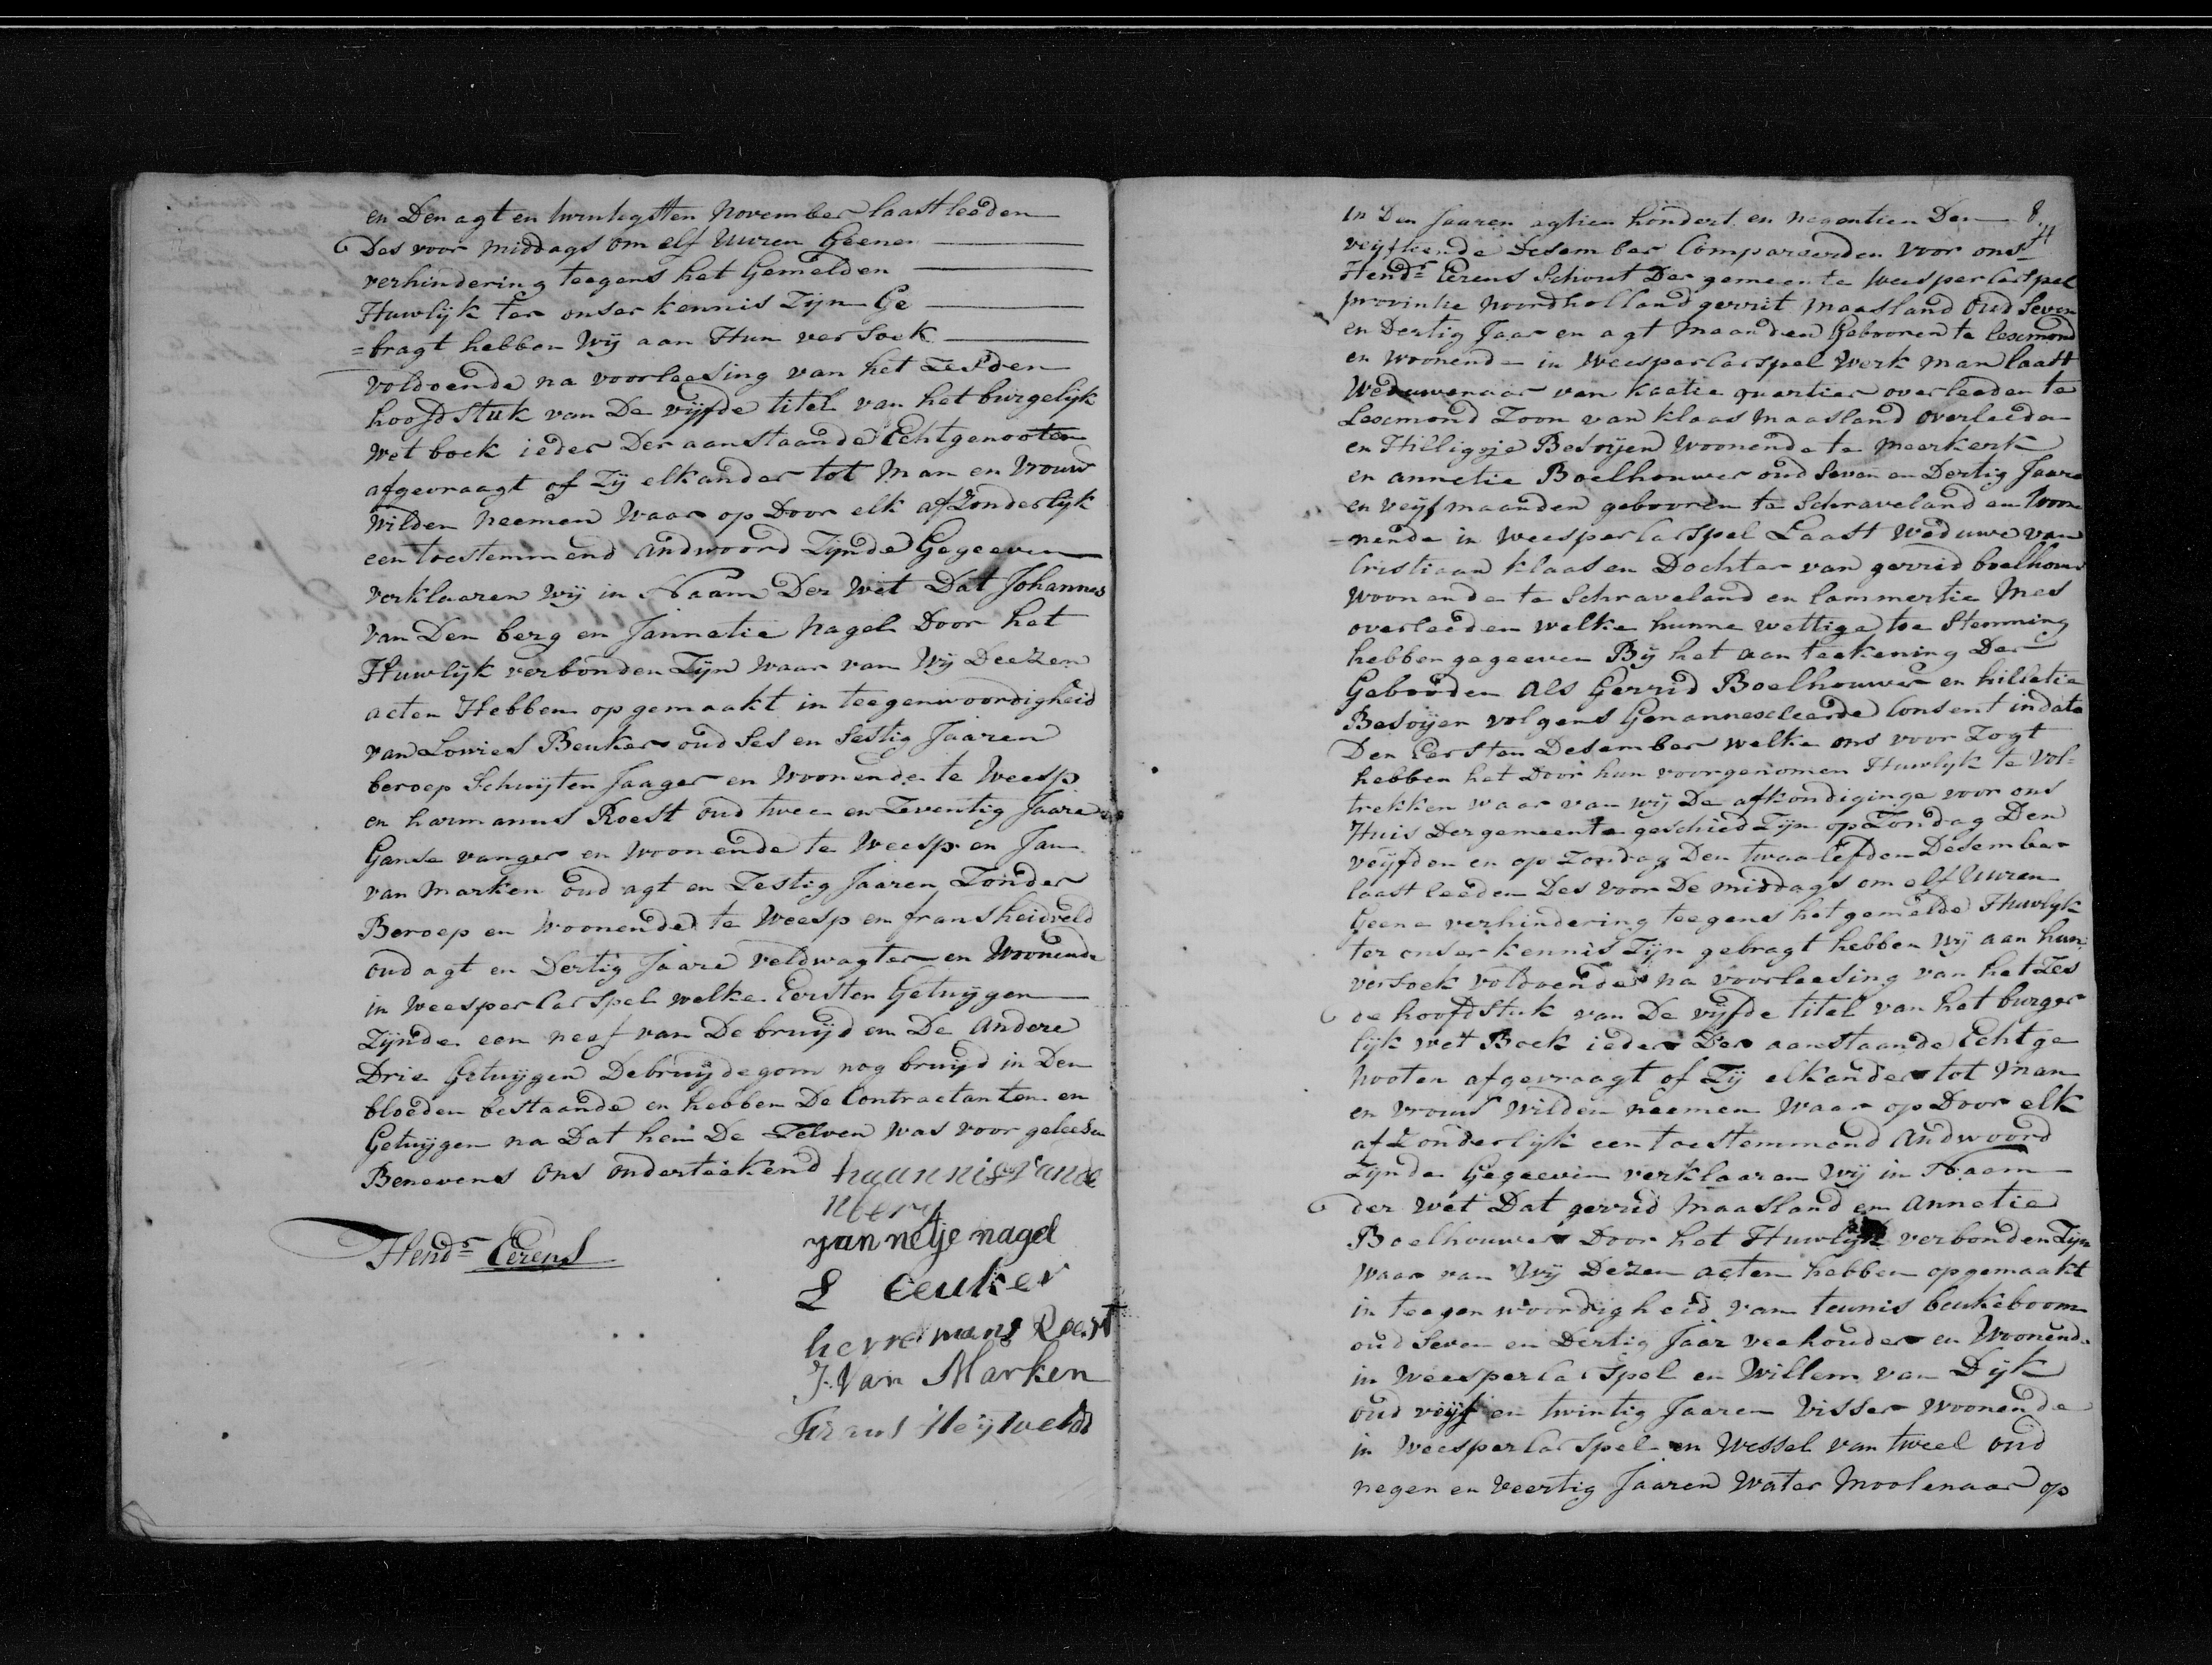 en Den agt en twintigsten November laastleeden
Des voor middags om elf Uuren Geene
verhindering teegens het Gemelden
Huwlijk ter onser kennis Zijn Ge
=bragt hebben Wij aan Hun versoek
voldoende na voorleesing van het Zesden
hoofdstuk van De vijfde titel van het burgelijk
Wet boek ieder Der aanstaande Echtgenooten
afgevraagt of Zij elkander tot Man en Vrouw
Wilden Neemen Waar op Door elk afZonderlijk
een toestemmend Andwoord Zijnde Gegeeven
verklaaren Wij in Naam Der Wet Dat Johannes
van Den berg en Jannetie Nagel Door het
Huwlijk verbonden Zijn Waar van Wij Deezen
acten Hebben opgemaakt in teegenwoordigheid
van Lowies Beuker oud Ses en Sestig Jaaren
beroep Schuijten Jaager en Woonende te Weesp
en harmanus Roest oud twee en Zeventig Jaare
Ganse vanger en Woonende te Weesp en Jan
van Marken oud agt en Zestig Jaaren Zonder
Beroep en Woonende te Weesp en frans heidveld
oud agt en Dertig Jaare veldwagter en Woonende
in Weesper Carspel welke Eersten Getuijgen
Zijnde een neef van De bruijd en De Andere
Drie Getuijgen De bruijdegom nog bruijd in Den
bloeden bestaande en hebben De Contractanten en
Getuijgen na Dat hen De Zelven was voor geleesen
Benevens Ons Onderteekend haannis vande
nberg
Hend.s Eerens
jannetje nagel
L Beuker
herremans Roest
J. Van Marken
Frans Heijtveldt
8
In Den Jaaren agtien hondert en negentien Den
veijftiende Desember Compareerden voor ons
Hend.s Eerens Schout Der gemeente Weesper Carspel
provintie Noordholland gerrit Maasland Oud Seven
en Dertig Jaar en agt Maanden Gebooren te Lexmond
en Woonende in Weesper Carspel Werk man laast
Weduwenaar van Kaatie quartier overleeden te
Lexmond Zoon van Klaas Maasland overleeden
en Hilligje Besoijen Woonende te Meerkerk
en annetie Boelhouwer oud Seven en Dertig Jaare
en veijf maanden gebooren te Schraveland en Woon
=nende in Weesper Carspel Laast Weduwe van
Cristiaan Klaasen Dochter van gerrid boelhouw
Woonende te Schraveland en Lammertie Mes
overleeden welke hunne wettige toe Stemming
hebben gegeeven Bij het aan teekening Der
Gebooden Als Gerrid Boelhouwer en hilletie
Besoijen volgens Genannexeleerde Consent in dato
Den Eersten Desember welke ons voor Zogt
hebben het Door hun voorgenomen Huwlijk te Vol=
trekken waar van wij De afkondiginge voor ons
Huis Der gemeente geschied Zijn op Zondag Den
veijfden en op Zondag Den twaalefden Desember
laast leeden Des voor De middags om elf Uuren
Geene verhindering teegens het gemelde Huwlijk
ter onser kennis Zijn gebragt hebben Wij aan hun
versoek voldoende na voorleesing van het Zes
de hoofdstuk van De vijfde titel van het burger
lijk wet Boek ieder Der aanstaande Echtge
nooten afgevraagt of Zij elkander tot Man
en Vrouw Wilden neemen Waar op Door elk
af Zonderlijk een toestemmend Andwoord
Zijnde Gegeeven verklaaren Wij in Naam
der wet Dat gerrid Maasland en Annetie
Boelhouwer Door het Huwlijk verbonden Zijn
Waar van Wij Dezen acten hebben opgemaakt
in teegen woordigheid van teunis beukeboom
oud Seven en Dertig Jaar veehouder en Woonende
in Weesper Carspel en Willem van Dijk
oud veijf en twintig Jaaren Visser Woonende
in Weesper Carspel en Wessel van tweel oud
negen en veertig Jaaren Water Moolenaar op